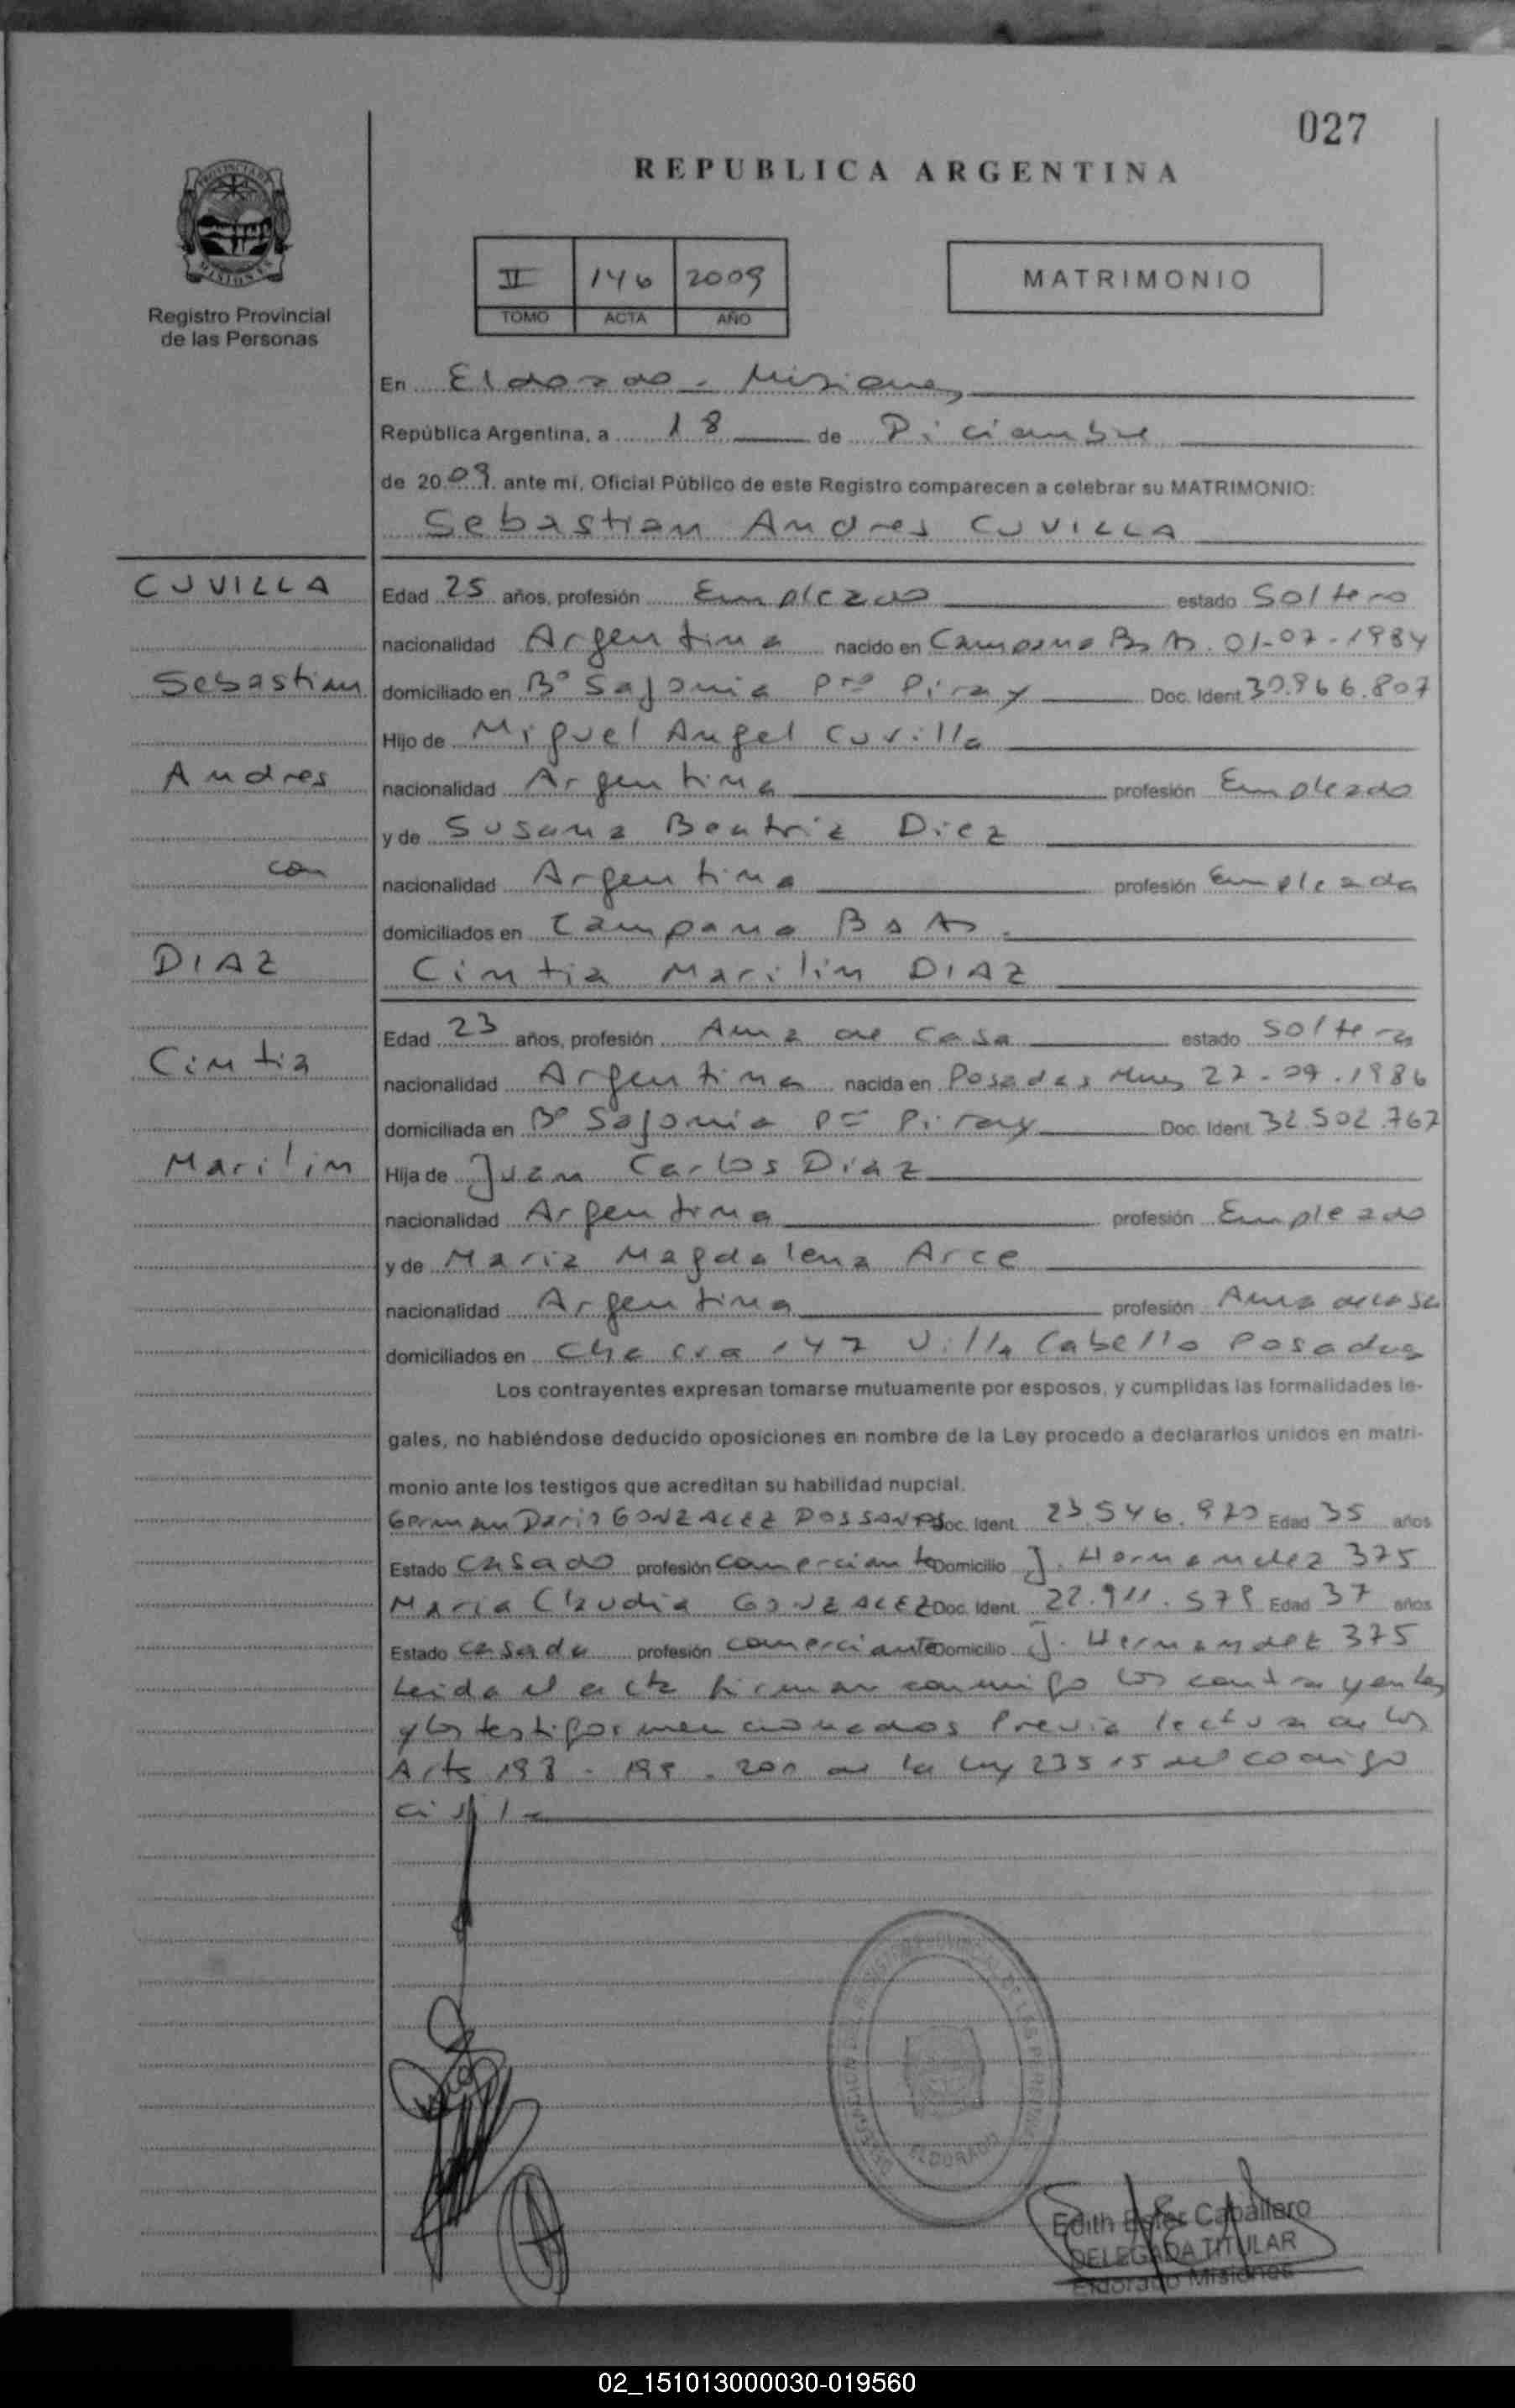 027
REPUBLICA ARGENTINA
PROVINCIA DE
MISIONES
Registro Provincial
de las Personas
II 146 2009
TOMO ACTA AÑO
MATRIMONIO
En Eldorado - Misiones
República Argentina, a 18 de Diciembre
de 2009. ante mí, Oficial Público de este Registro comparecen a celebrar su MATRIMONIO:
Sebastian Andres CUVILLA
CUVILLA
Sebastian
Andres
con
DIAZ
Cintia
Marilin
Edad 25 años, profesión Empleado estado Soltero
nacionalidad Argentina nacido en Campana Bs As. 01-07-1984
domiciliado en Bº Sajonia Pto Piray Doc. Ident. 30.966.807
Hijo de Miguel Angel Cuvilla
nacionalidad Argentina profesión Empleado
y de Susana Beatriz Diez
nacionalidad Argentina profesión Empleada
domiciliados en Campana Bs As.
Cintia Marilin DIAZ
Edad 23 años, profesión Ama de casa estado Soltera
nacionalidad Argentina nacida en Posadas Mnes 27-09-1986
domiciliada en Bº Sajonia Pto Piray Doc. Ident. 32.502.767
Hija de Juan Carlos Diaz
nacionalidad Argentina profesión Empleado
y de Maria Magdalena Arce
nacionalidad Argentina profesión Ama de casa
domiciliados en Chacra 147 Villa Cabello Posadas
Los contrayentes expresan tomarse mutuamente por esposos, y cumplidas las formalidades le-
gales, no habiéndose deducido oposiciones en nombre de la Ley procedo a declararlos unidos en matri-
monio ante los testigos que acreditan su habilidad nupcial.
German Dario GONZALEZ DOSSANTOS Doc. Ident. 23.546.920 Edad 35 años
Estado Casado profesión Comerciante Domicilio J. Hernandez 375
Maria Claudia GONZALEZ Doc. Ident. 22.911.578 Edad 37 años
Estado Casada profesión Comerciante Domicilio J. Hernandez 375
Leida el acta firman conmigo los contrayentes
y los testigos mencionados Previa lectura de los
Arts 198 - 199 - 200 de la Ley 23515 del codigo
civil-
ELDORADO
Edith Ester Caballero
DELEGADA TITULAR
Eldorado Misiones
02_151013000030-019560